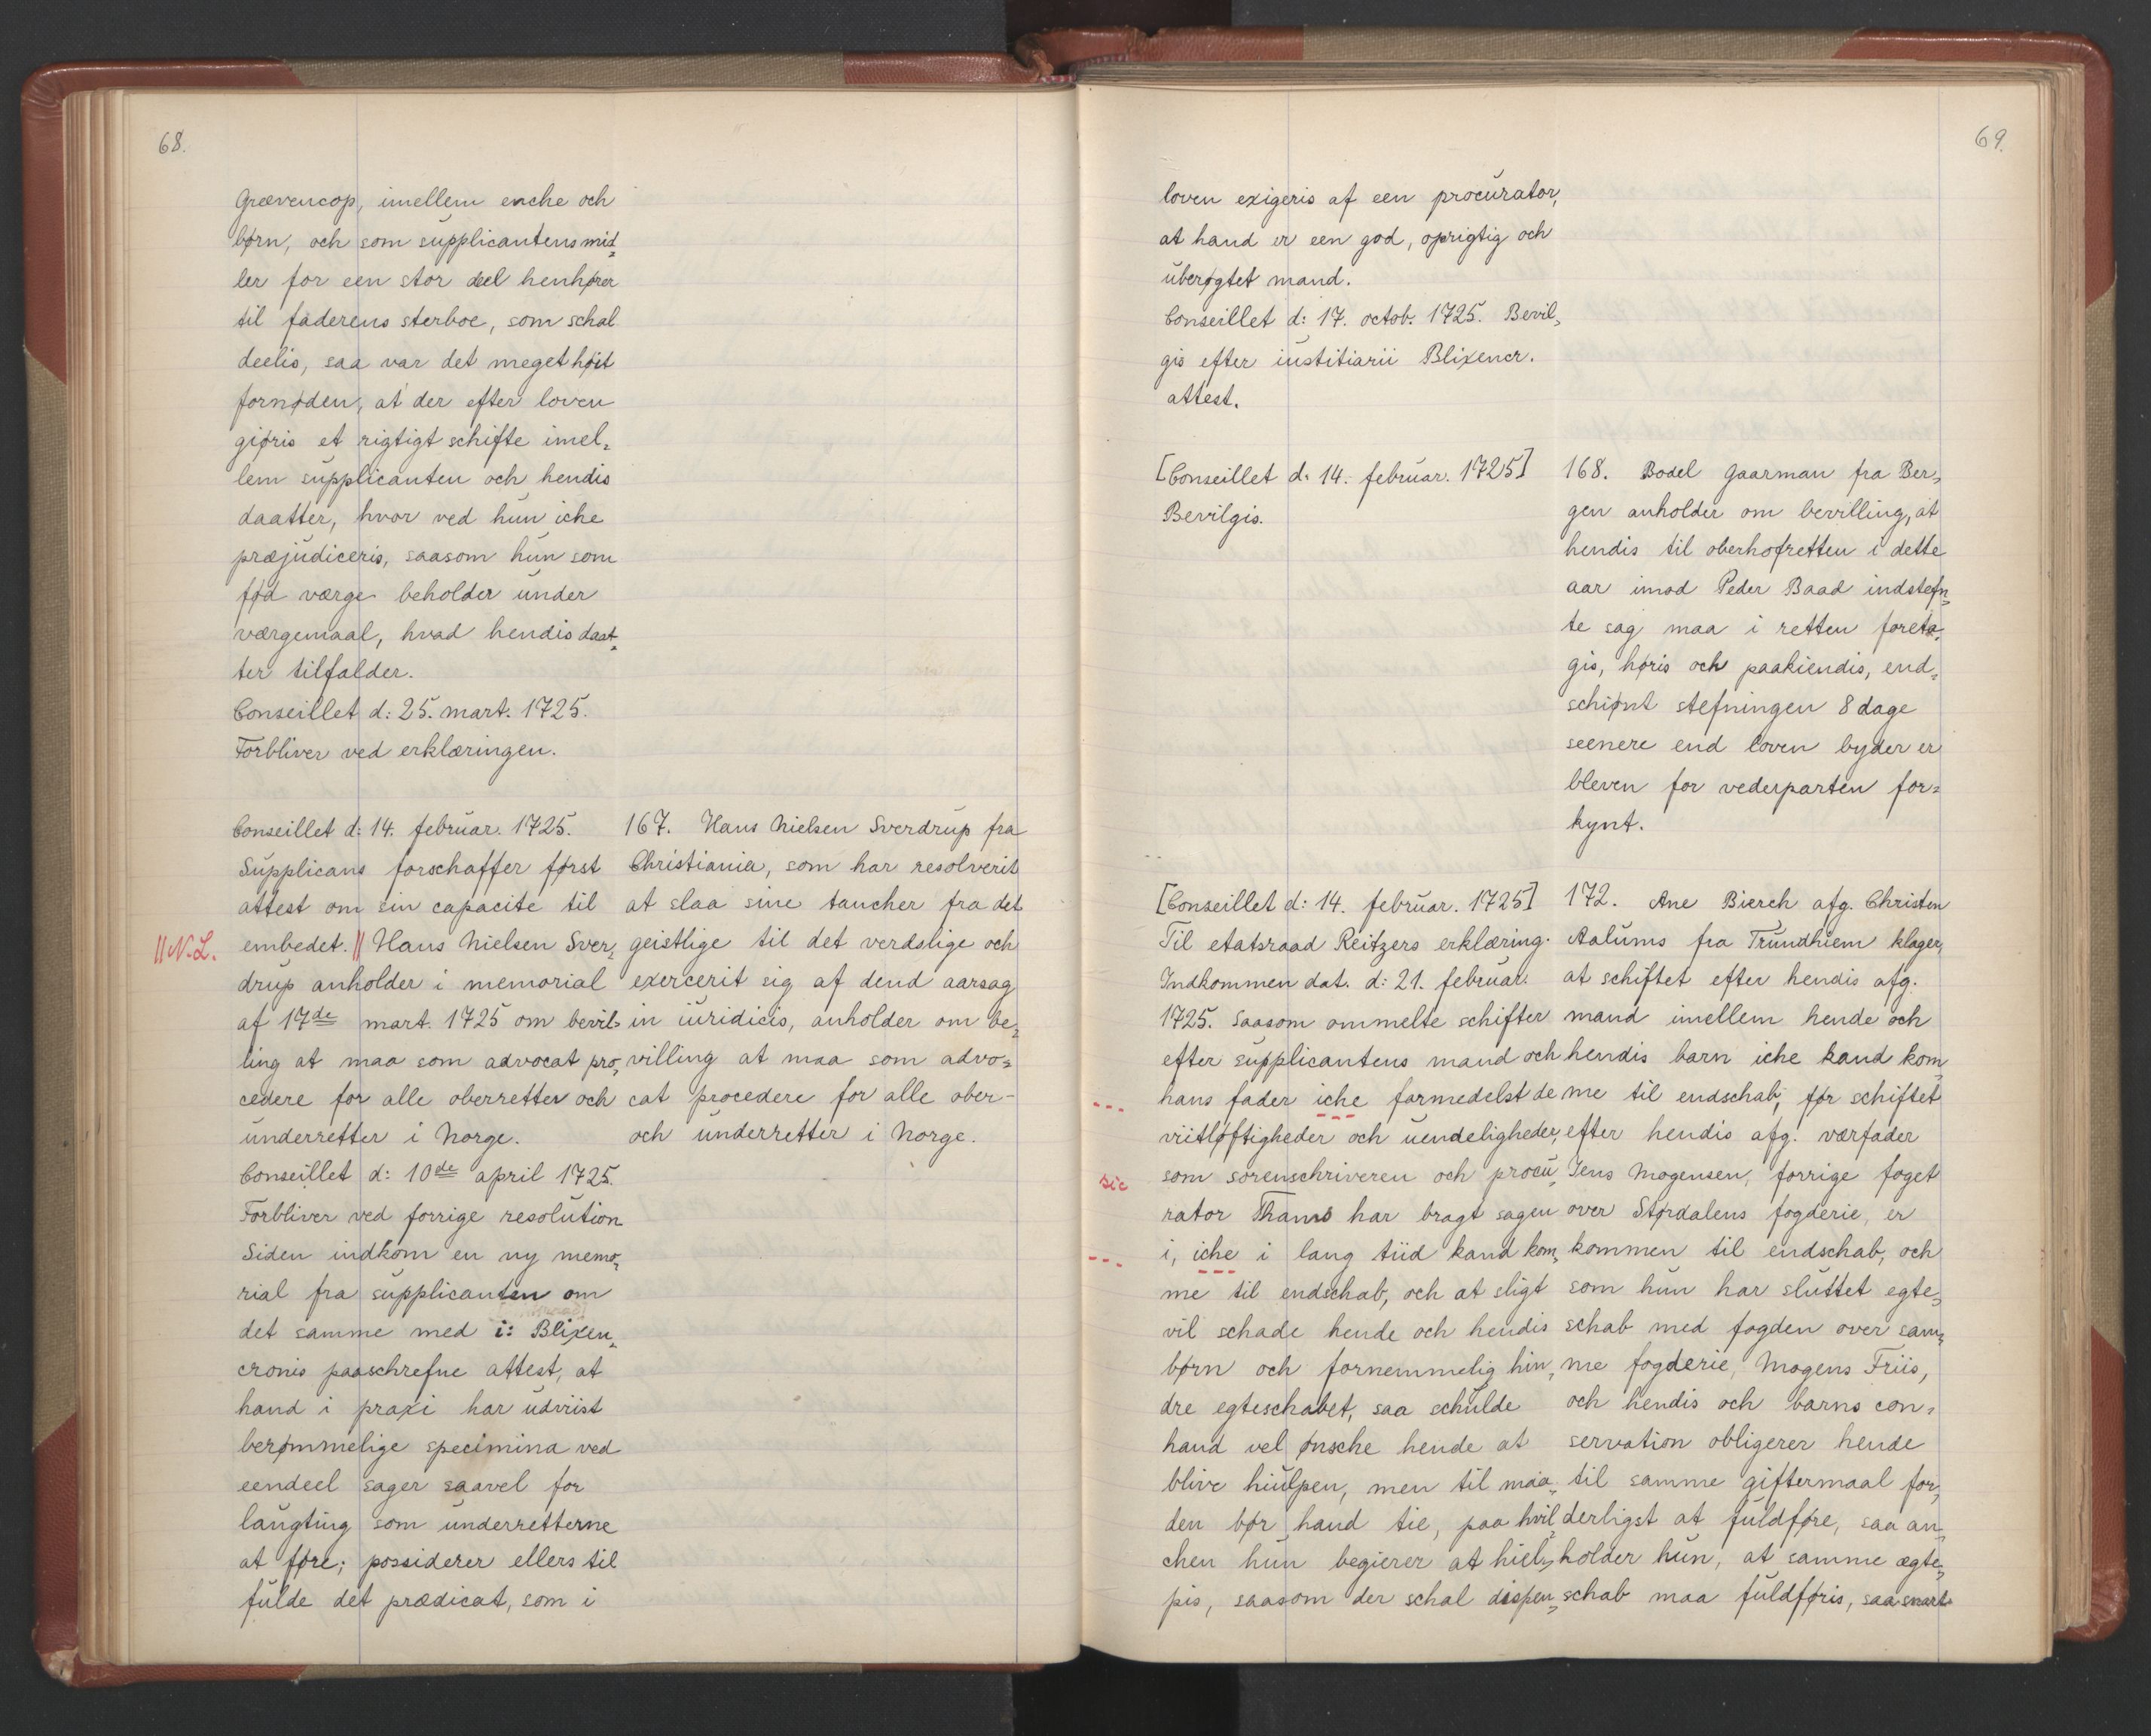 68.
Grævencop, imellem enche och
børn, och som supplicantens mid¸
ler for een stor deel henhører
til faderens sterboe, som schal
deelis, saa var det meget høit
fornøden, at der efter loven
giøris et rigtigt schifte imel¸
lem supplicanten och hendis
daatter, hvor ved hun iche
præjudiceris, saasom hun som
fød værge beholder under
værgemaal, hvad hendis daat¸
ter tilfalder.
Conseillet d: 25. mart. 1725.
Forbliver ved erklæringen.
Conseillet d: 14. februar. 1725.
Supplicans forschaffer først
attest om sin capacite til
||N.L. embedet. || Hans Nielsen Sver¸
drup anholder i memorial
af 17de mart. 1725 om bevil¸
ling at maa som advocat pro¸
cedere for alle oberretter och
underretter i Norge.
Conseillet d: 10de april 1725.
Forbliver ved forrige resolution
Siden indkom en ny memo¸
rial fra supplicanten om
det samme med i: Blixen¸
cronis paaschrefne attest, at
hand i praxi har udviist
berømmelige specimina ved
eendeel sager saavel for
laugting som underretterne
at føre; possiderer ellers til
fulde det prædicat, som i
167. Hans Nielsen Sverdrup fra
Christiania, som har resolverit
at slaa sine tancher fra det
geistlige til det verdslige och
exercerit sig af dend aarsag
in iuridicis, anholder om be¸
villing at maa som advo=
cat procedere for alle ober-
och underretter i Norge.
69.
loven exigeris af een procurator,
at hand er een god, oprigtig och
uberøgtet mand.
Conseillet d: 17. octob. 1725. Bevil¸
gis efter iustitiarii Blixencr.
attest.
[Conseillet d: 14. februar. 1725]
Bevilgis.
168. Bodel Gaarman fra Ber¸
gen anholder om bevilling, at
hendis til oberhofretten i dette
aar imod Peder Baad indstefn¸
te sag maa i retten foreta¸
gis, høris och paakiendis, end¸
schiønt stefningen 8 dage
seenere end loven byder er
bleven for vederparten for=
kynt.
[Conseillet d: 14. februar. 1725]
Til etatsraad Reitzers erklæring.
Indkommen dat. d: 21. februar.
1725. Saasom ommelte schifter
efter supplicantens mand och
--- hans fader iche formedelst de
viitløftigheder och uendeligheder,
sic som sorenschriveren och procu¸
rator Thams har bragt sagen
--- i, iche i lang tiid kand kom¸
me til endschab, och at sligt
vil schade hende och hendis
børn och fornemmelig hin¸
dre egteschabet, saa schulde
hand vel ønsche hende at
blive hiulpen, men til maa¸
den bør hand tie, paa hvil
chen hun begierer at hiel¸
pis, saasom der schal dispen¸
172. Ane Bierch afg. Christen
Aalums fra Trundhiem klager,
at schiftet efter hendis afg.
mand imellem hende och
hendis barn iche kand kom¸
me til endschab, før schiftet
efter hendis afg. værfader
Jens Mogensen, forrige foget
over Størdalens fogderie, er
kommen til endschab, och
som hun har sluttet egte¸
schab med fogden over sam¸
me fogderie, Mogens Friis,
och hendis och barns con¸
servation obligerer hende
til samme giftermaal for¸
derligst at fuldføre, saa an¸
holder hun, at samme ægte¸
schab maa fuldføris, saa snart